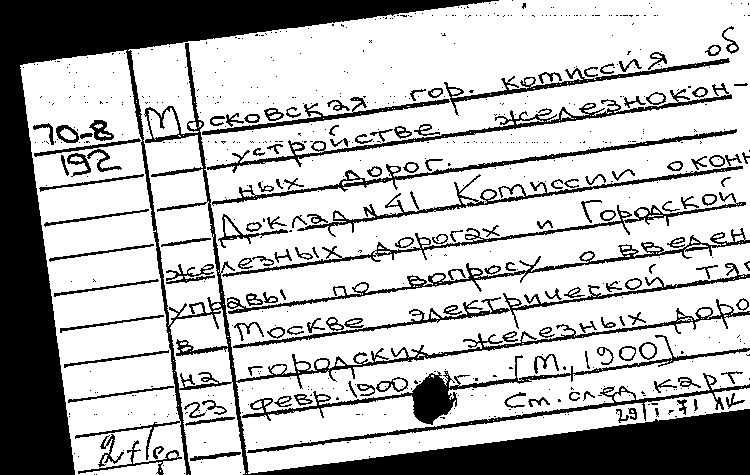 70-8
192
Московская гор. комиссия об
устройстве железнокон-
ных дорог.
Доклад № 41 Комиссии о конн
железных дорогах и Городской
управы по вопросу о введен
в Москве электрической тяг
на городских железных доро
23 февр. 1900 г. [М., 1900].
См. след. карт.
29/I-71